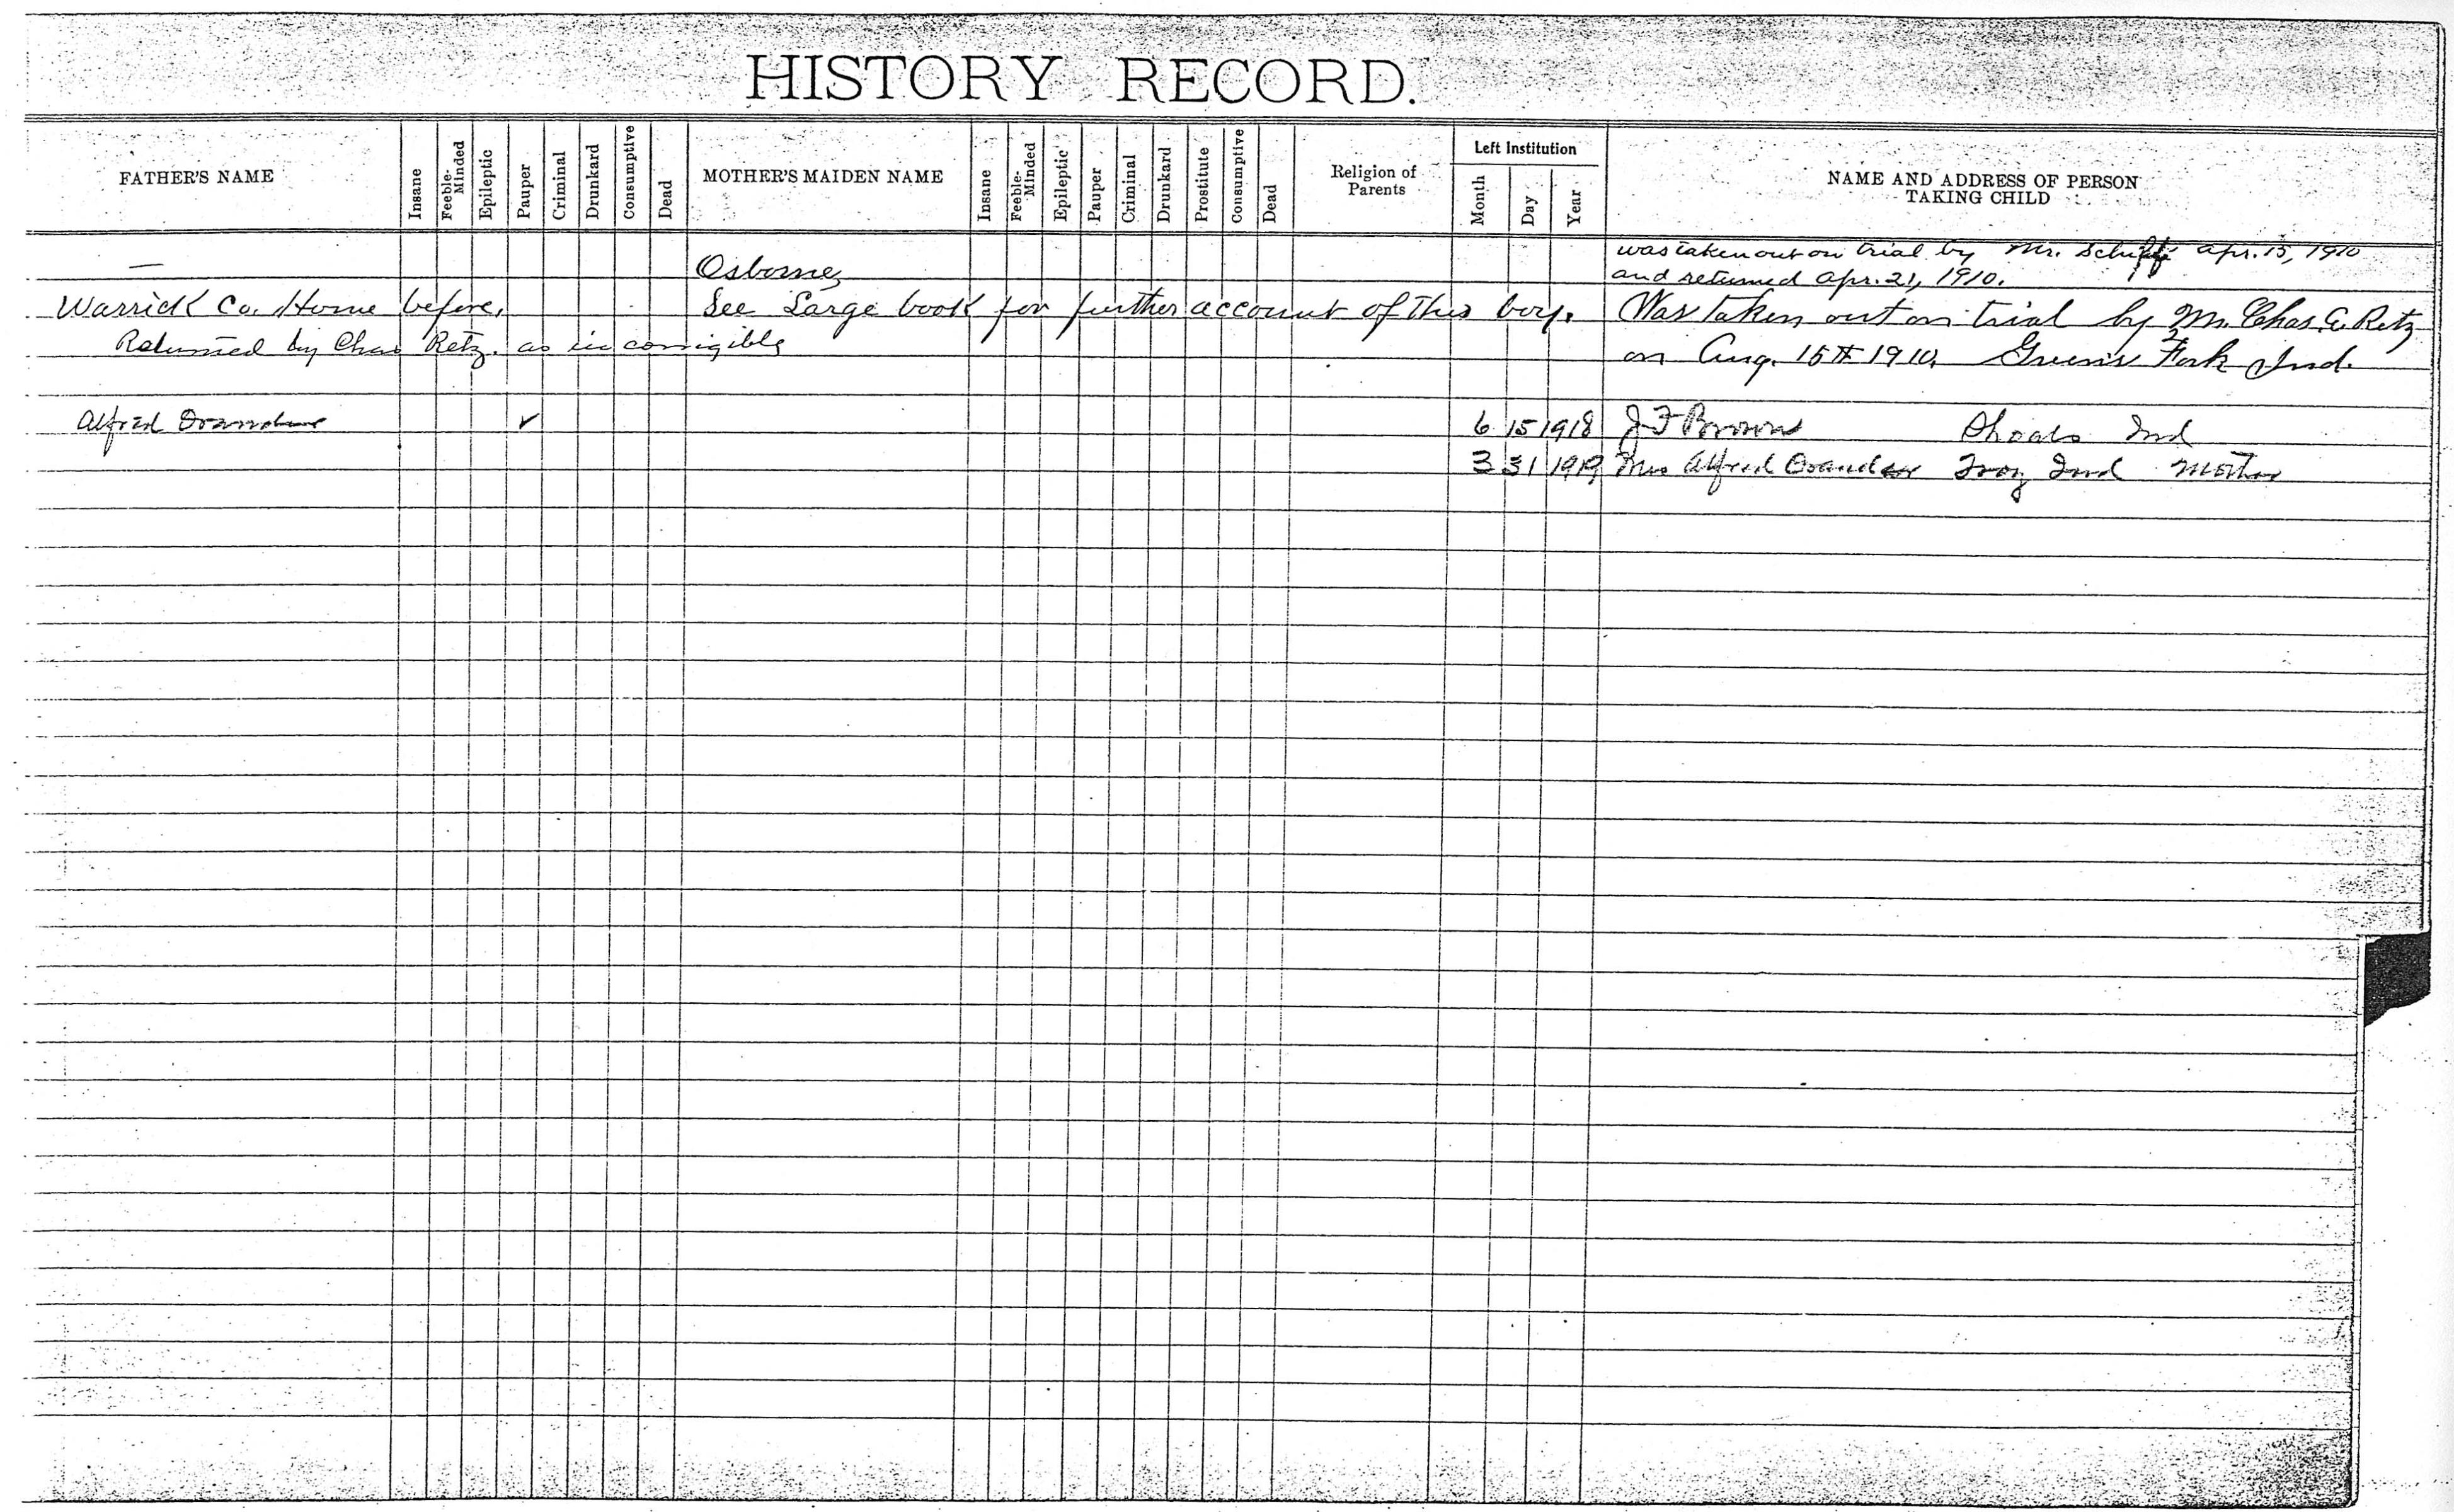 HISTORY RECORD.
FATHER'S NAME
Insane
Feeble-Minded
Epileptic
Pauper
Criminal
Drunkard
Consumptive
Dead
MOTHER'S MAIDEN NAME
Insane
Feeble-Minded
Epileptic
Pauper
Criminal
Drunkard
Prostitute
Consumptive
Dead
Religion of Parents
Left Institution
Month
Day
Year
NAME AND ADDRESS OF PERSON
TAKING CHILD
— Osborne, was taken out on trial by Mr. apr. 15, 1910
and returned apr. 21, 1910.
Warrick Co. Home before, See Large book for further account of this boy. Was taken out on trial by Mr. Chas. Retz
Returned by Chas Retz. as incorrigible on Aug. 15th 1910, Green's Fork Ind.
Alfred ✓ 6 15 1918 J F Brown Shoals Ind
3 31 1919 Mrs Alfred Troy Ind Mother